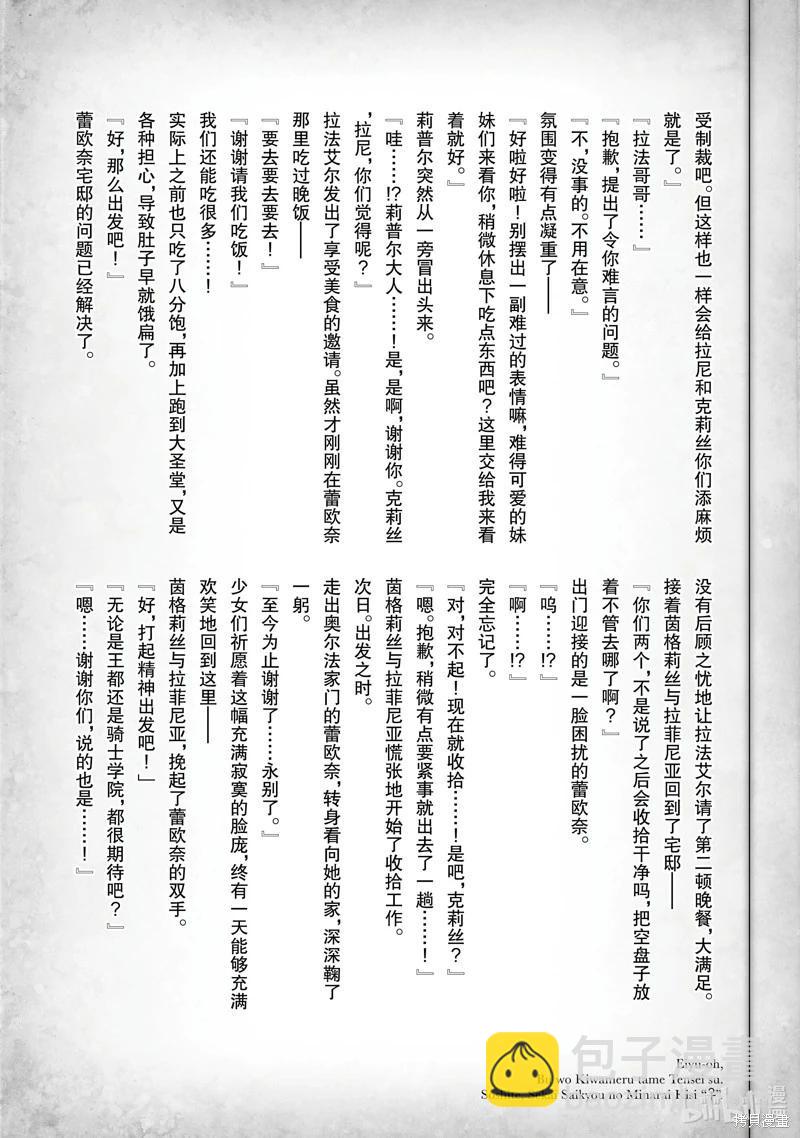 受制裁吧。但这样也一样会给拉尼和克莉丝你们添麻烦
就是了。』
『拉法哥哥……』
『抱歉,提出了令你难言的问题。』
『不,没事的。不用在意。』
氛围变得有点凝重了——
『好啦好啦!别摆出一副难过的表情嘛,难得可爱的妹
妹们来看你,稍微休息下吃点东西吧?这里交给我来看
着就好。』
莉普尔突然从一旁冒出头来。
『哇……!?莉普尔大人……!是,是啊,谢谢你。克莉丝
,拉尼,你们觉得呢?』
拉法艾尔发出了享受美食的邀请。虽然才刚刚在蕾欧奈
那里吃过晚饭——
『要去要去要去!』
『谢谢请我们吃饭!』
我们还能吃很多……!
实际上之前也只吃了八分饱,再加上跑到大圣堂,又是
各种担心,导致肚子早就饿扁了。
『好,那么出发吧!』
蕾欧奈宅邸的问题已经解决了。
没有后顾之忧地让拉法艾尔请了第二顿晚餐,大满足。
接着茵格莉丝与拉菲尼亚回到了宅邸——
『你们两个,不是说了之后会收拾干净吗,把空盘子放
着不管去哪了啊?』
出门迎接的是一脸困扰的蕾欧奈。
『呜……!?』
『啊……!?』
完全忘记了。
『对,对不起!现在就收拾……!是吧,克莉丝?』
『嗯。抱歉,稍微有点要紧事就出去了一趟……!』
茵格莉丝与拉菲尼亚慌张地开始了收拾工作。
次日。出发之时。
走出奥尔法家门的蕾欧奈,转身看向她的家,深深鞠了
一躬。
『至今为止谢谢了……永别了。』
少女们祈愿着这幅充满寂寞的脸庞,终有一天能够充满
欢笑地回到这里——
茵格莉丝与拉菲尼亚,挽起了蕾欧奈的双手。
『好,打起精神出发吧!』
『无论是王都还是骑士学院,都很期待吧?』
『嗯……谢谢你们,说的也是……!』
Eiyu-oh,
Bu wo Kiwameru tame Tensei su.
Soshite, Sekai Saikyou no Minarai Kisi "♀".
包子漫畫
拷貝漫畫